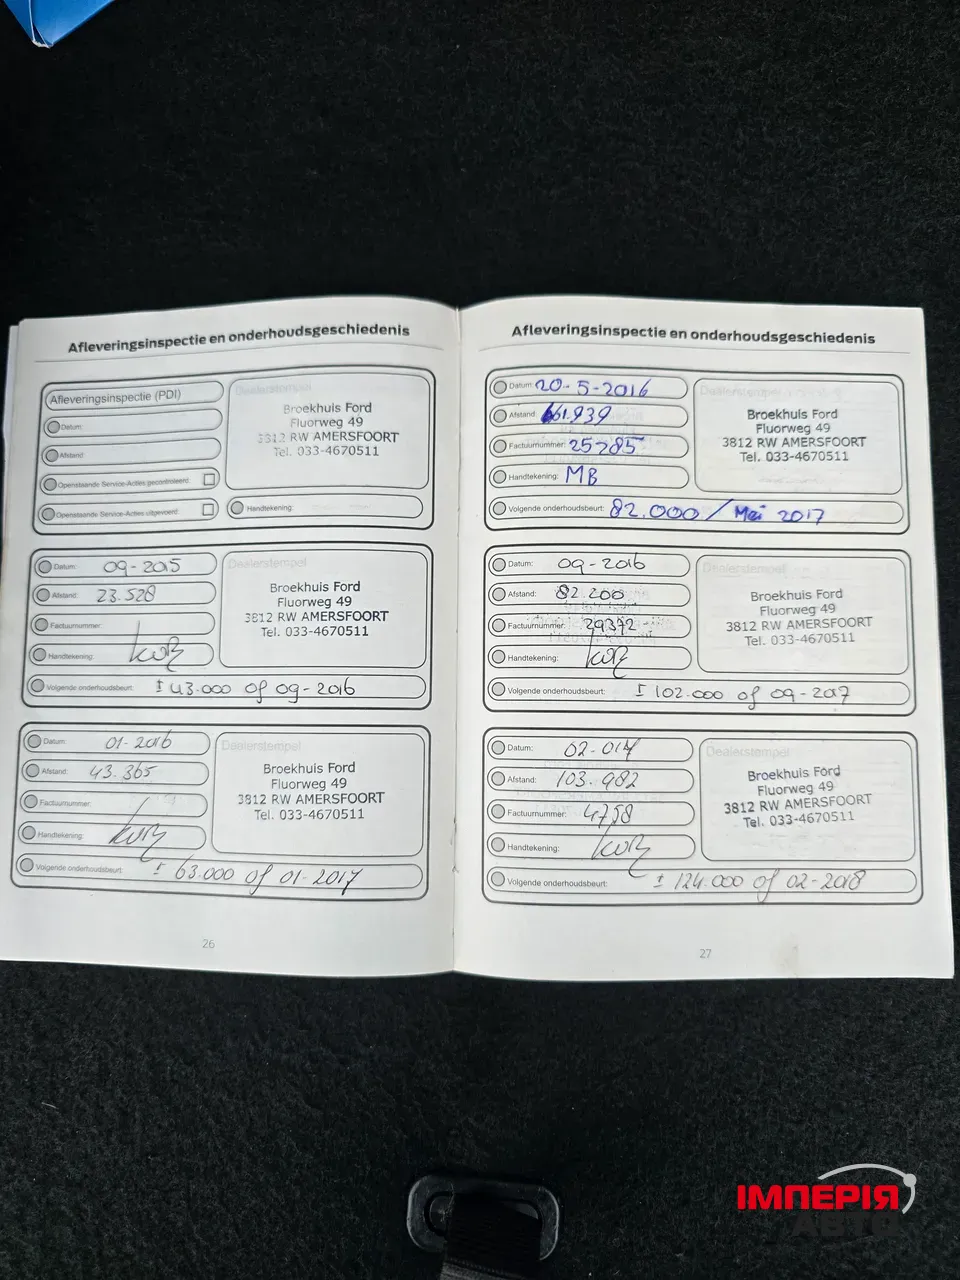 Afleveringsinspectie en onderhoudsgeschiedenis
Afleveringsinspectie (PDI)
Datum:
Afstand:
Openstaande Service-Acties gecontroleerd:
Openstaande Service-Acties uitgevoerd:
Dealerstempel
Broekhuis Ford
Fluorweg 49
3812 RW AMERSFOORT
Tel. 033-4670511
Handtekening:
Datum: 09-2015
Afstand: 23.528
Factuurnummer:
Handtekening:
Volgende onderhoudsbeurt: ± 43.000 of 09-2016
Dealerstempel
Broekhuis Ford
Fluorweg 49
3812 RW AMERSFOORT
Tel. 033-4670511
Datum: 01-2016
Afstand: 43.365
Factuurnummer:
Handtekening:
Volgende onderhoudsbeurt: ± 63.000 of 01-2017
Dealerstempel
Broekhuis Ford
Fluorweg 49
3812 RW AMERSFOORT
Tel. 033-4670511
26
Afleveringsinspectie en onderhoudsgeschiedenis
Datum: 20-5-2016
Afstand: 61.939
Factuurnummer: 25785
Handtekening: MB
Volgende onderhoudsbeurt: 82.000 / Mei 2017
Dealerstempel
Broekhuis Ford
Fluorweg 49
3812 RW AMERSFOORT
Tel. 033-4670511
Datum: 09-2016
Afstand: 82.200
Factuurnummer: 29372
Handtekening:
Volgende onderhoudsbeurt: ± 102.000 of 09-2017
Dealerstempel
Broekhuis Ford
Fluorweg 49
3812 RW AMERSFOORT
Tel. 033-4670511
Datum: 02-017
Afstand: 103.982
Factuurnummer: 4758
Handtekening:
Volgende onderhoudsbeurt: ± 124.000 of 02-2018
Dealerstempel
Broekhuis Ford
Fluorweg 49
3812 RW AMERSFOORT
Tel. 033-4670511
27
ІМПЕРІЯ
АВТО